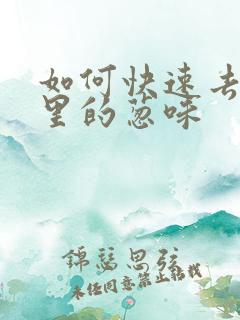 如何快速去
里的葱味
錦瑟思弦
未经同意禁止转载